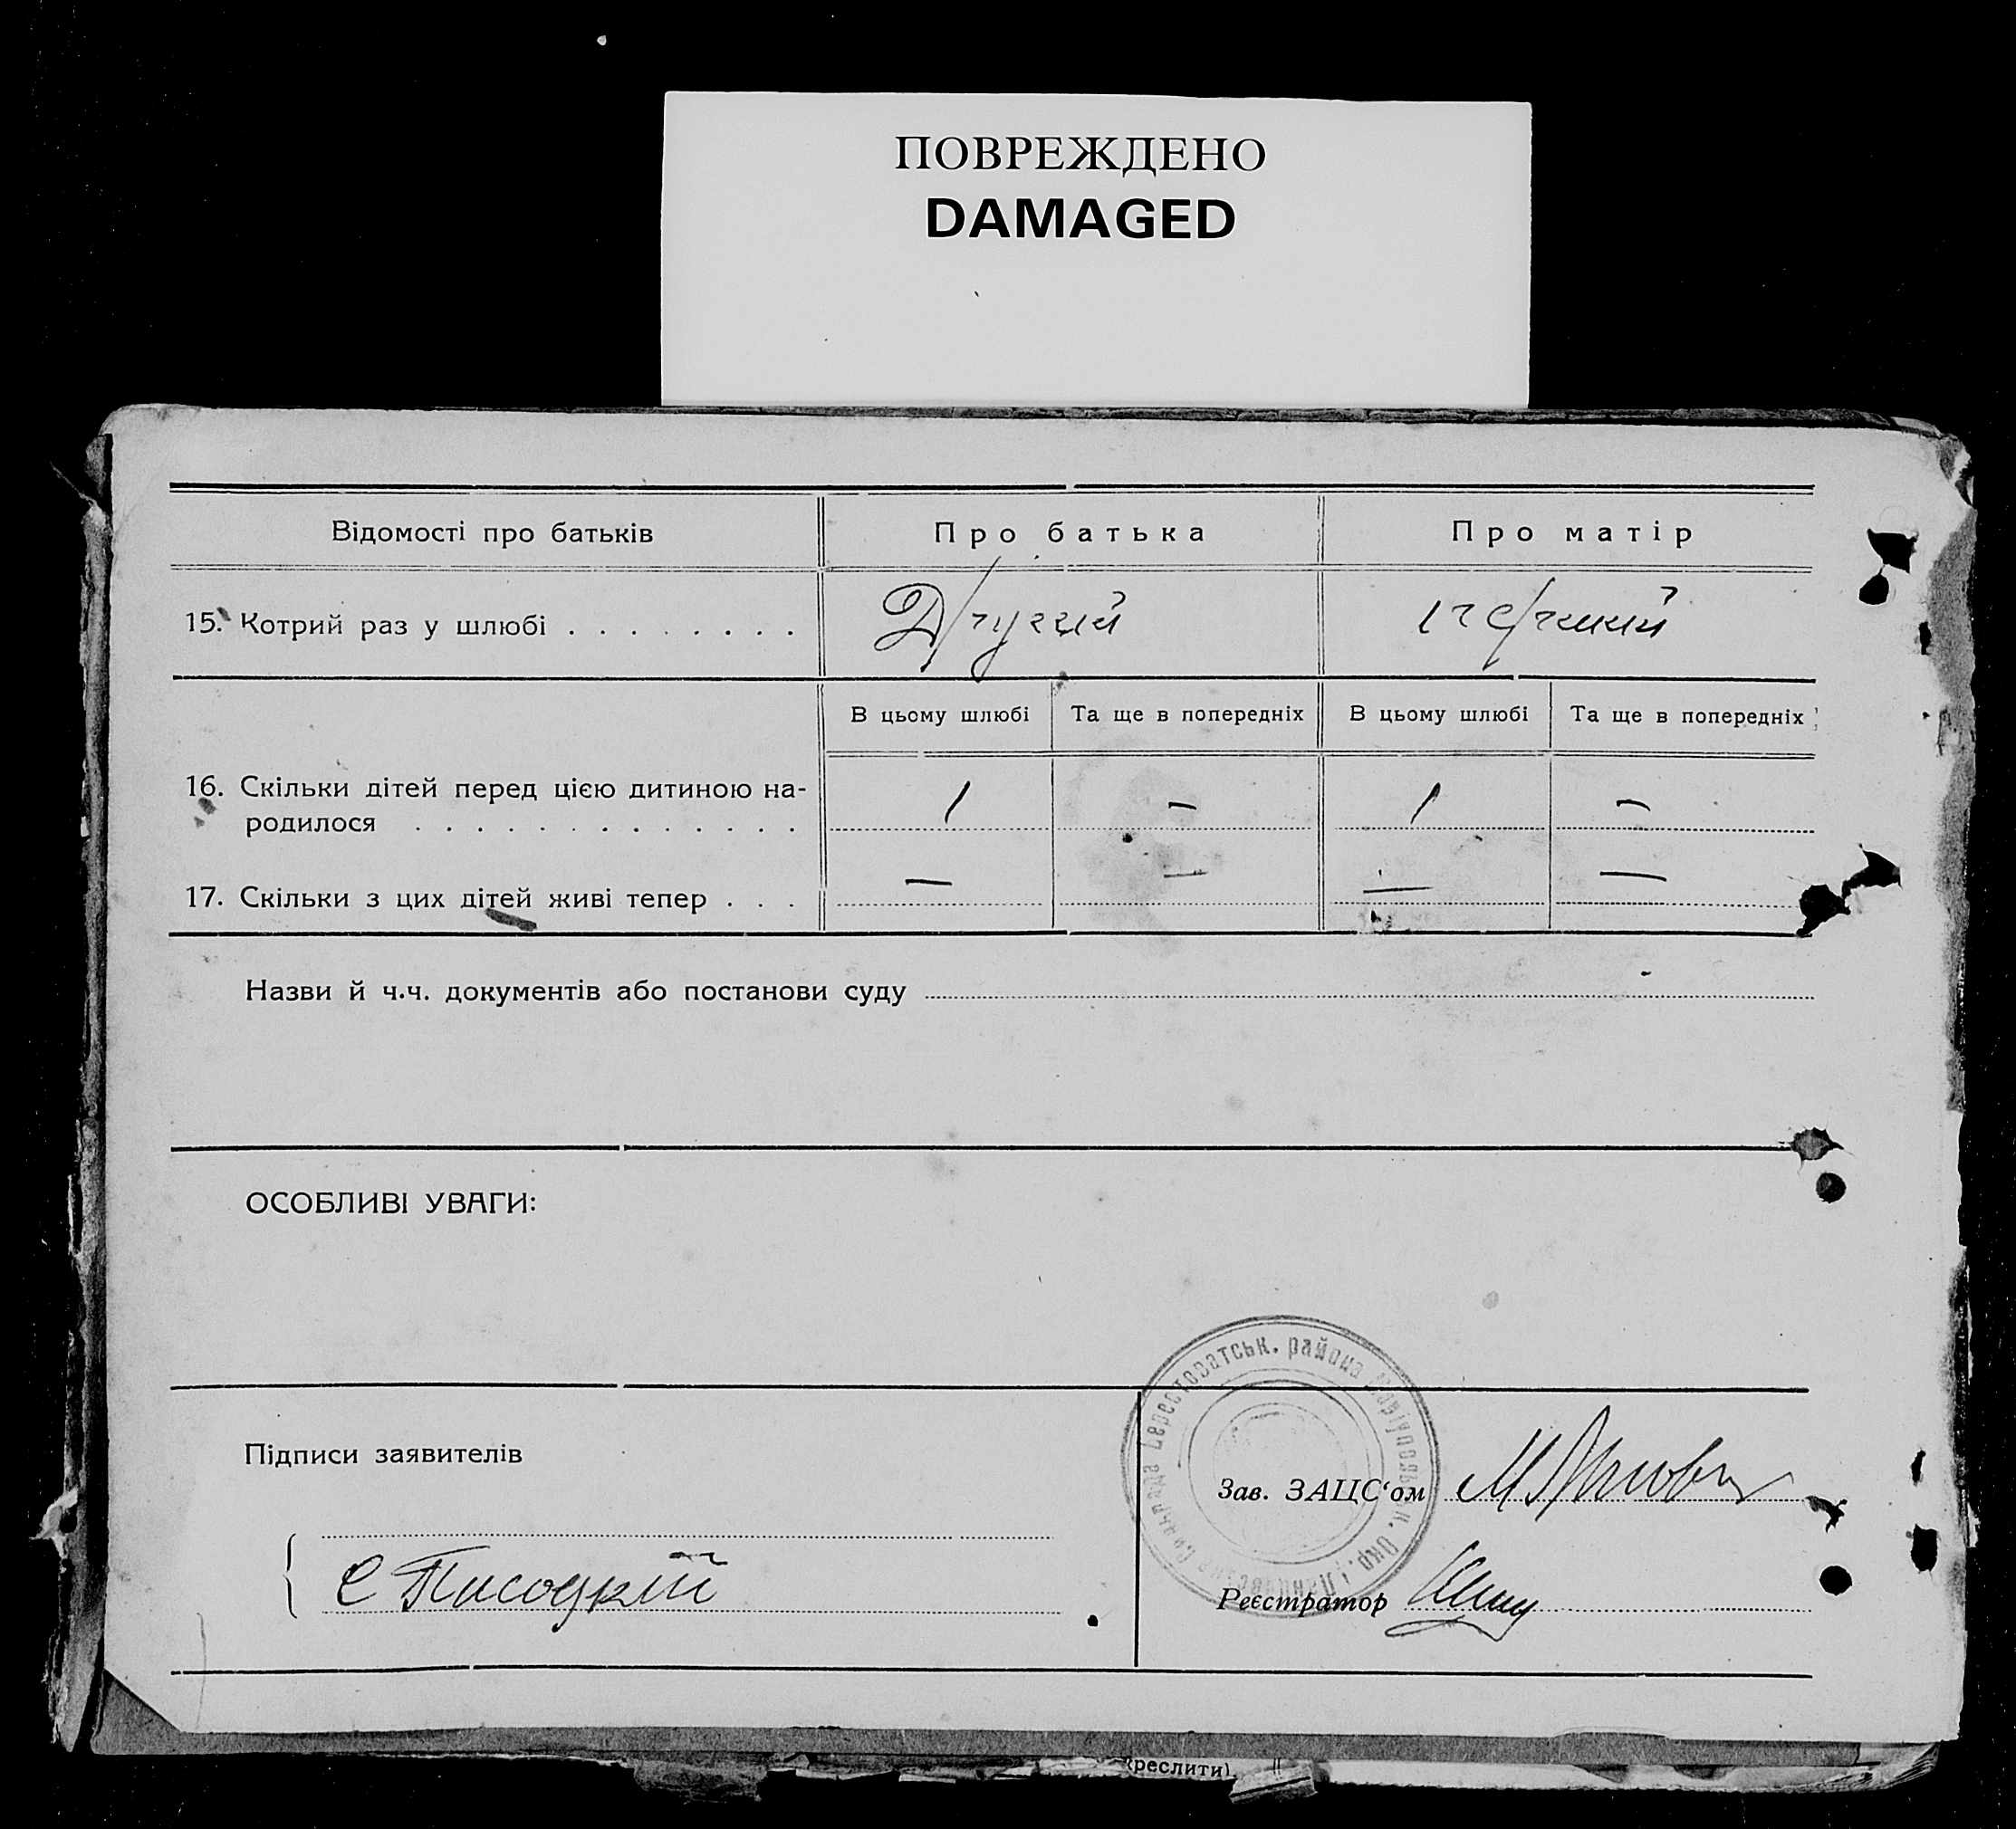 ПОВРЕЖДЕНО
DAMAGED
Відомості про батьків
Про батька
Про матір
15. Котрий раз у шлюбі . . . . . . . .
Другий
первий
В цьому шлюбі
Та ще в попередніх
В цьому шлюбі
Та ще в попередніх
16. Скільки дітей перед цією дитиною на-
родилося . . . . . . . . . . . . .
1 – 1 –
17. Скільки з цих дітей живі тепер . . .
— — — —
Назви й ч.ч. документів або постанови суду
ОСОБЛИВІ УВАГИ:
Підписи заявителів
Берестоватськ. района Маріупольськ. Окр.
Зав. ЗАЦС‘ом
Реєстратор
реслити)